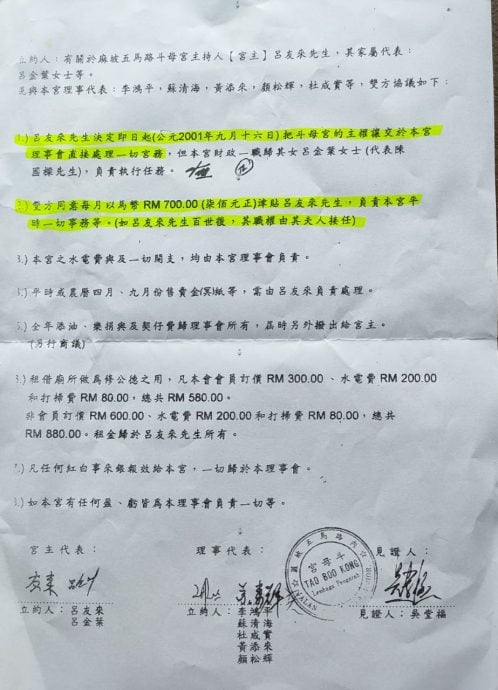 立約人：有關於麻坡五馬路斗母宮主持人【宮主】呂友來先生，其家屬代表：
呂金葉女士等。
見與本宮理事代表：李鴻平，蘇清海，黃添來，顏松輝，杜成實等，雙方協議如下：
1.) 呂友來先生決定即日起(公元2001年九月十六日)把斗母宮的主權讓交於本宮
理事會直接處理一切宮務，但本宮財政一職歸其女呂金葉女士(代表陳
國樑先生)，負責執行任務。
2.) 雙方同意每月以馬幣 RM 700.00 (柒佰元正)津貼呂友來先生，負責本宮平
時一切事務等。(如呂友來先生百世後，其職權由其夫人接任)
3.) 本宮之水電費與及一切開支，均由本宮理事會負責。
4.) 平時或農曆四月、九月份售賣金(冥)紙等，當由呂友來負責處理。
5.) 全年添油、樂捐與及契仔費歸理事會所有，屆時另外撥出給宮主。
(另行商議)
6.) 租借廟所做為修公德之用，凡本會會員訂價 RM 300.00、水電費 RM 200.00
和打掃費 RM 80.00，總共 RM 580.00。
非會員訂價 RM 600.00、水電費 RM 200.00 和打掃費 RM 80.00，總共
RM 880.00。租金歸於呂友來所有。
7.) 凡任何紅白事來銀報效給本宮，一切歸於本理事會。
8.) 如本宮有任何盈、虧皆為本理事會負責一切等。
宮主代表： 理事代表： 見證人：
斗母宮
TAO BOO KONG
Lembaga Pengarah
立約人：呂友來 立約人：李鴻平 見證人：吳堂福
呂金葉 蘇清海
杜成實
黃添來
顏松輝